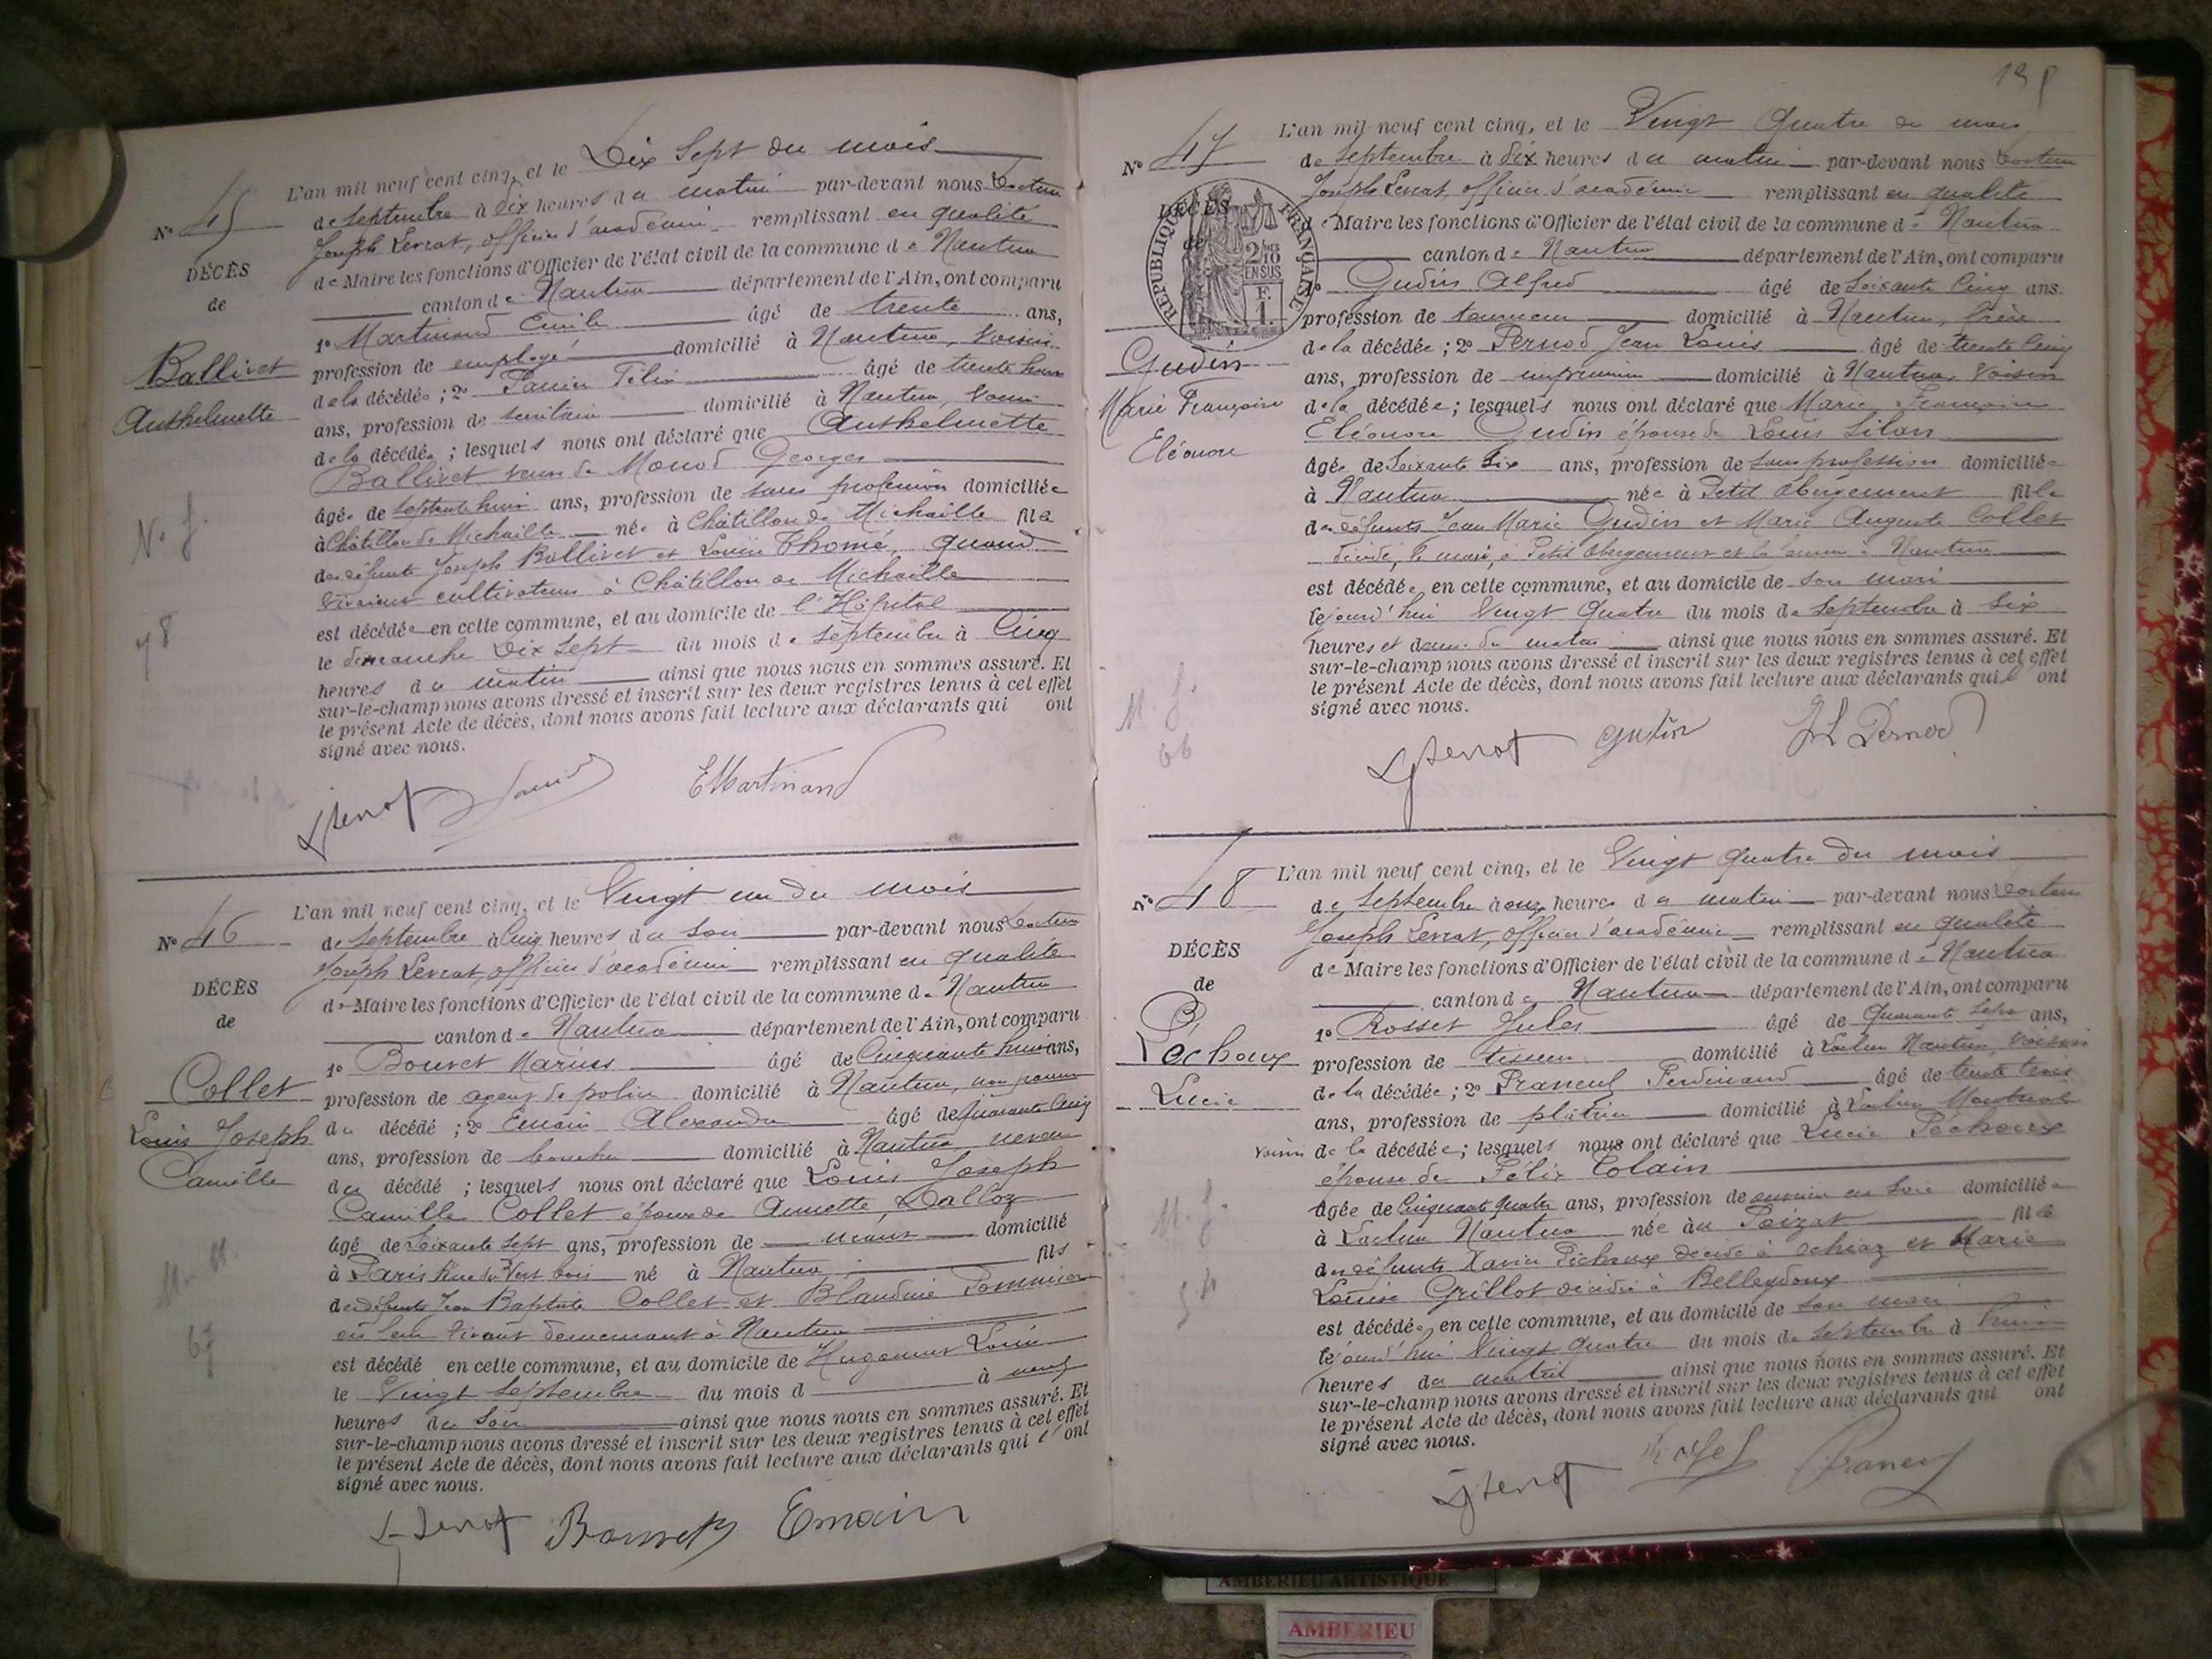 L'an mil neuf cent cinq, et le Dix Sept du mois
N° 45
de Septembre à Dix heures du matin par-devant nous Docteur
Joseph Levrat, officier d'académie remplissant en qualité
DÉCÈS
de Maire les fonctions d'Officier de l'état civil de la commune de Nantua
de
canton de Nantua département de l'Ain, ont comparu
1° Martinand Emile âgé de trente ans,
Ballivet
profession de employé domicilié à Nantua, voisin
Anthelmette
de la décédée ; 2° Félix âgé de trente huit
ans, profession de domicilié à Nantua, voisin
de la décédée ; lesquels nous ont déclaré que Anthelmette
Ballivet veuve de Monod Georges
âgée de septante huit ans, profession de sans profession domiciliée
à Châtillon de Michaille née à Châtillon de Michaille fille
de défunts Joseph Ballivet et Louise Thomé, quand
vivaient cultivateurs à Châtillon de Michaille
est décédée en cette commune, et au domicile de l'Hôpital
le dimanche Dix Sept du mois de Septembre à Cinq
78
heures du matin ainsi que nous nous en sommes assuré. Et
sur-le-champ nous avons dressé et inscrit sur les deux registres tenus à cet effet
le présent Acte de décès, dont nous avons fait lecture aux déclarants qui ont
signé avec nous.
EMartinand
L'an mil neuf cent cinq, et le Vingt un du mois
N° 46
de Septembre à Cinq heures du soir par-devant nous Docteur
Joseph Levrat, officier d'académie remplissant en qualité
DÉCÈS
de Maire les fonctions d'Officier de l'état civil de la commune de Nantua
de
canton de Nantua département de l'Ain, ont comparu
1° Bouvet Marius âgé de Cinquante huit ans,
Collet
profession de agent de police domicilié à Nantua, non parent
Louis Joseph
du décédé ; 2° Emain Alexandre âgé de quarante cinq
Camille
ans, profession de boucher domicilié à Nantua neveu
du décédé ; lesquels nous ont déclaré que Louis Joseph
Camille Collet époux de Annette Dalloz
âgé de Soixante Sept ans, profession de néant domicilié
à Paris Rue du Vert bois né à Nantua fils
de défunts Jean Baptiste Collet et Blandine Pommier
en leur vivant demeurant à Nantua
67
est décédé en cette commune, et au domicile de Hugonnet Louis
le Vingt Septembre du mois d à neuf
heures du soir ainsi que nous nous en sommes assuré. Et
sur-le-champ nous avons dressé et inscrit sur les deux registres tenus à cet effet
le présent Acte de décès, dont nous avons fait lecture aux déclarants qui l'ont
signé avec nous.
Bouvet Emain
L'an mil neuf cent cinq, et le Vingt Quatre du mois
N° 47
de Septembre à Dix heures du matin par-devant nous Docteur
Joseph Levrat, officier d'académie remplissant en qualité
DÉCÈS
de Maire les fonctions d'Officier de l'état civil de la commune de Nantua
de
RÉPUBLIQUE FRANÇAISE
2/10 EN SUS
F. 1.
canton de Nantua département de l'Ain, ont comparu
1° Gudin Alfred âgé de Soixante Cinq ans.
profession de tourneur domicilié à Nantua, frère
Gudin
de la décédée ; 2° Pernod Jean Louis âgé de trente cinq
ans, profession de domicilié à Nantua, voisin
Marie Françoise
de la décédée ; lesquels nous ont déclaré que Marie Françoise
Eléonore
Eléonore Gudin épouse de Louis Silan
âgée de Soixante Six ans, profession de sans profession domiciliée
à Nantua née à Petit Abergement fille
de défunts Jean Marie Gudin et Marie Auguste Collet
décédés, le mari, à Petit Abergement et la femme à Nantua
est décédée en cette commune, et au domicile de son mari
le jourd'hui Vingt Quatre du mois de Septembre à Six
heures et demie du matin ainsi que nous nous en sommes assuré. Et
sur-le-champ nous avons dressé et inscrit sur les deux registres tenus à cet effet
le présent Acte de décès, dont nous avons fait lecture aux déclarants qui l'ont
signé avec nous.
66
Gudin JL Pernod
L'an mil neuf cent cinq, et le Vingt Quatre du mois
N° 48
de Septembre à onze heures du matin par-devant nous Docteur
Joseph Levrat, officier d'académie remplissant en qualité
DÉCÈS
de Maire les fonctions d'Officier de l'état civil de la commune de Nantua
de
canton de Nantua département de l'Ain, ont comparu
1° Rosset Jules âgé de Quarante Sept ans,
Péchoux
profession de tisseur domicilié à Nantua, voisin
Lucie
de la décédée ; 2° Ferdinand âgé de trente trois
ans, profession de plâtrier domicilié à
voisin de la décédée ; lesquels nous ont déclaré que Lucie Péchoux
épouse de Félix Colain
âgée de Cinquante Quatre ans, profession de ouvrière en soie domiciliée
à Nantua née au Poizat fille
de défunts Xavier Péchoux décédé à Echiaz et Marie
Louise Grillot décédée à Belleydoux
est décédée en cette commune, et au domicile de son mari
le jourd'hui Vingt Quatre du mois de Septembre à huit
heures du matin ainsi que nous nous en sommes assuré. Et
sur-le-champ nous avons dressé et inscrit sur les deux registres tenus à cet effet
le présent Acte de décès, dont nous avons fait lecture aux déclarants qui ont
signé avec nous.
AMBÉRIEU ARTISTIQUE
AMBERIEU